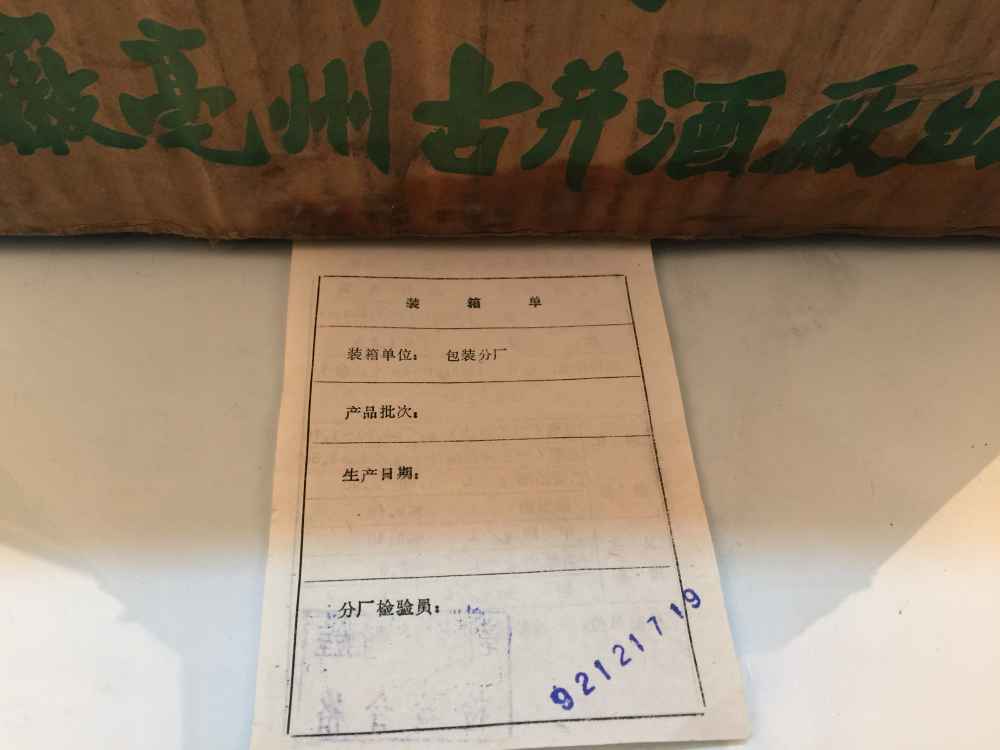 徽亳州古井酒厂出
装箱单
装箱单位： 包装分厂
产品批次：
生产日期：
分厂检验员：
92121719